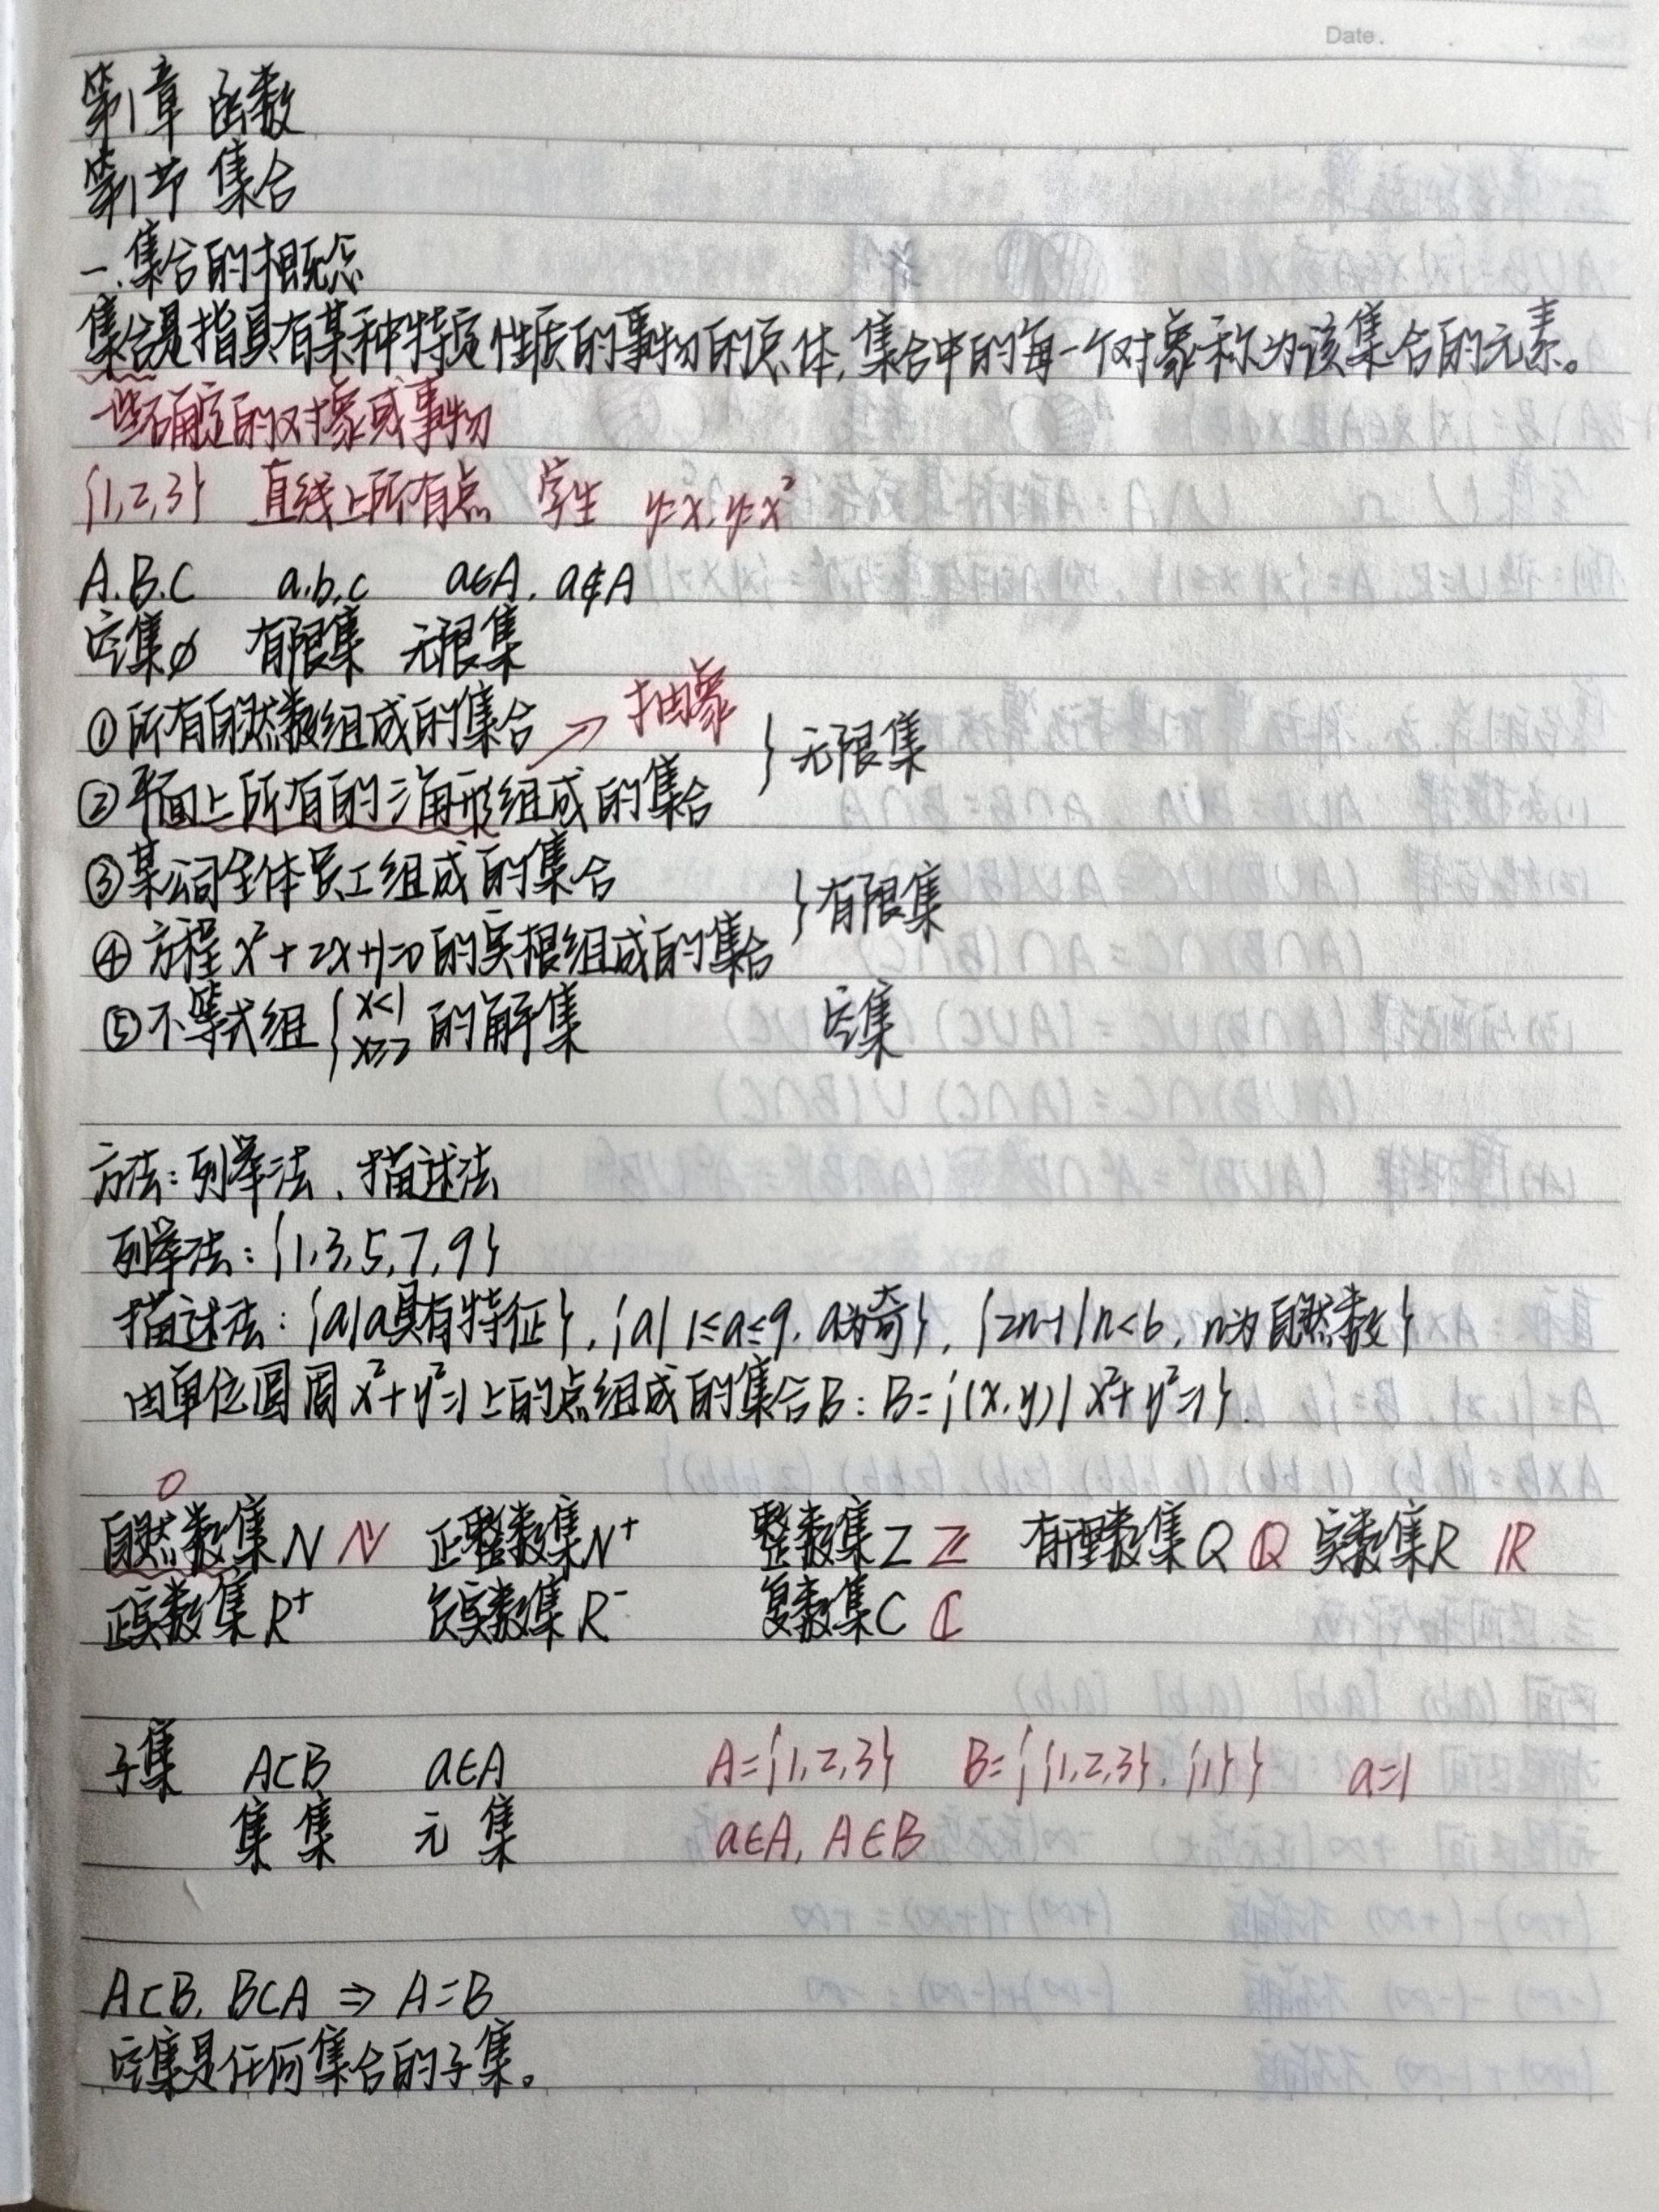 Date.
第1章 函数
第1节 集合
一.集合的概念
集合是指具有某种特定性质的事物的总体,集合中的每一个对象称为该集合的元素。
一些确定的对象或事物
{1,2,3} 直线上所有点 学生 y=x, y=x²
A.B.C a.b.c a∈A. a∉A
空集∅ 有限集 无限集
①所有自然数组成的集合 → 抽象
②平面上所有的三角形组成的集合 } 无限集
③某公司全体员工组成的集合
④方程 x²+2x+1=0 的实根组成的集合 } 有限集
⑤不等式组 { x<1 x≥2 的解集 空集
方法:列举法、描述法
列举法:{1,3,5,7,9}
描述法:{a|a具有特征},{a| 1≤a≤9, a为奇},{2n-1|n<6, n为自然数}
由单位圆周 x²+y²=1 上的点组成的集合B: B={(x,y)| x²+y²=1}.
0
自然数集N ℕ 正整数集N⁺ 整数集Z ℤ 有理数集Q ℚ 实数集R ℝ
正实数集R⁺ 负实数集R⁻ 复数集C ℂ
子集 A⊂B a∈A A={1,2,3} B={{1,2,3},{1}} a=1
集 集 元 集 a∈A, A∈B
A⊂B, B⊂A ⇒ A=B
空集是任何集合的子集。